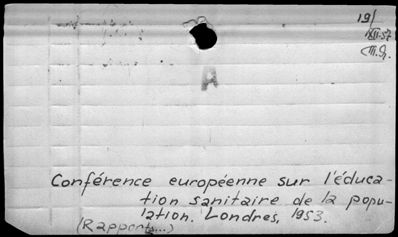 19/
XII-57
A
Conférence européenne sur l'éduca-
tion sanitaire de la popu-
lation. Londres, 1953.
(Rapports...)